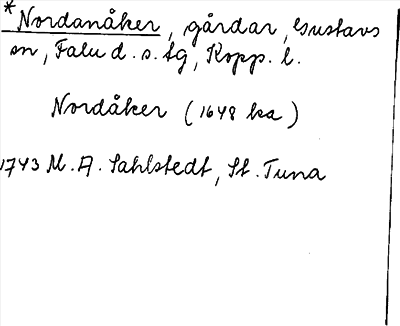 *Nordanåker, gårdar, Gustavs
sn, Falu d. s. tg, Kopp. l.
Nordåker (1648 ka)
1743 M. A. Sahlstedt, St. Tuna